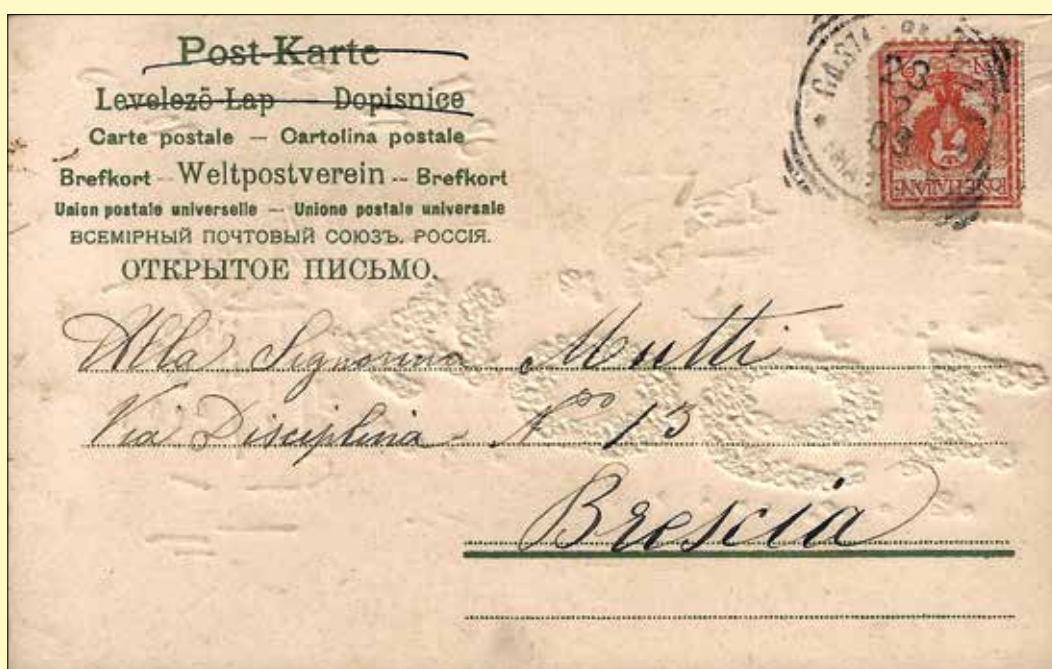 Post-Karte
Levelezö-Lap — Dopisnice
Carte postale — Cartolina postale
Brefkort -- Weltpostverein -- Brefkort
Union postale universelle — Unione postale universale
ВСЕМІРНЫЙ ПОЧТОВЫЙ СОЮЗЪ. РОССІЯ.
ОТКРЫТОЕ ПИСЬМО.
Alla Signorina Mutti
Via Disciplina - N° 13
Brescia
POSTE ITALIANE